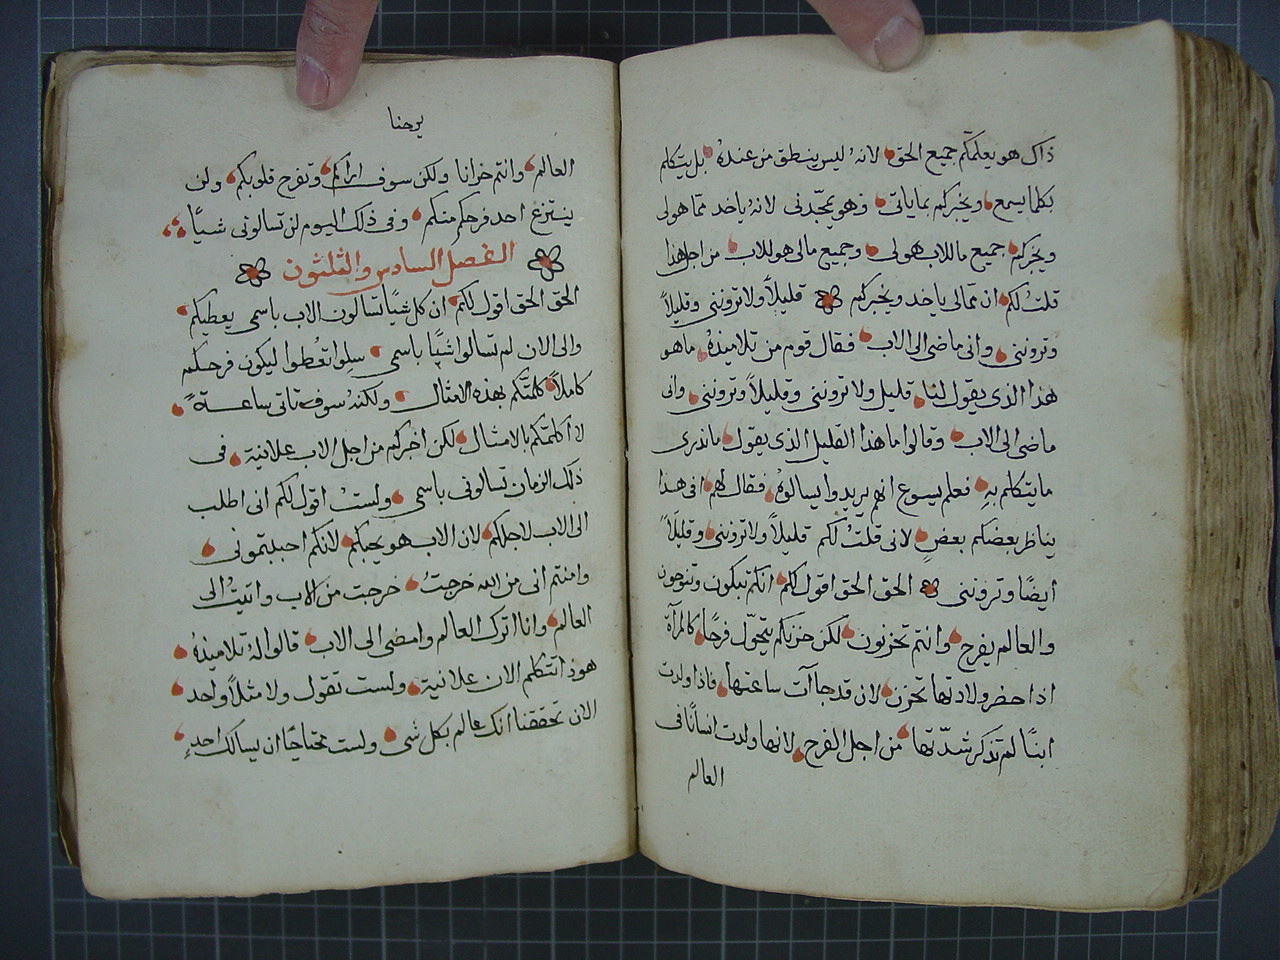 ذاك هو يعلمكم جميع الحق لانهُ ليس ينطق من عندهُ بل يتكلم
بكلما يسمع ويخبركم بما ياتى فهو يمجّدنى لانهُ ياخد ممّا هو لى
ويخبركم جميع ما للاب هو لى وجميع مالى هو للاب من اجل هذا
قلتُ لكم ان ممّالى ياخد ويخبركم قليلاً ولا ترونى وقليلاً
وترونى وانى ماضى الى الاب فقال قوم من تلاميذهُ ما هو
هذا الذى يقول لنا قليل ولا ترونى وقليلاً وترونى وانى
ماضى الى الاب وقالوا ما هذا القليل الذى يقول ما ندرى
ما يتكلم بهِ فعلم يسوع انهم يريدوا يسالوهُ فقال لهم افى هذا
يناظر بعضكم بعضٍ لانى قلتُ لكم قليلاً ولا ترونى وقليلاً
ايضًا وترونى الحق الحق اقول لكم انكم تبكون وتنوحون
والعالم يفرح وانتم تحزنون لكن حزنكم يتحوّل فرحًا كالمرآة
اذا حضر ولادتها تحزن لان قد جاآت ساعتها فاذا ولدت
ابنًا لم تذكر شدّتها من اجل الفرح لانها ولدت انسانًا فى
العالم
يوحنا
العالم وانتم حزانا ولكن سوف اراكم وتفرح قلوبكم ولن
ينتزع احد فرحكم منكم وفى ذلك اليوم لن تسالونى شيًا
الفصل السادس والثلثون
الحق الحق اقول لكم ان كل شيًا تسالون الاب باسمى يعطيكم
والى الان لم تسالوا شيًا باسمى سلوا تعُطوا ليكون فرحكم
كاملاً كلمتكم بهذه الامثال ولكنهُ سوف تاتى ساعة
لا اكلمتكم بالامثال لكن اخبركم من اجل الاب علانية فى
ذلك الزمان تسالونى باسمى ولستُ اقول لكم انى اطلب
الى الاب لاجلكم لان الاب هو يحبكم لانكم احببتمونى
وامنتم انى من الله خرجتُ خرجت من الاب واتيتُ الى
العالم وانا اترك العالم وامضى الى الاب قالوا لهُ تلاميذهُ
هوذا تتكلم الان علانية ولست تقول ولا مثلاً واحد
الان تحققنا انك عالم بكل شى ولست محتاجًا ان يسالك احدٍ